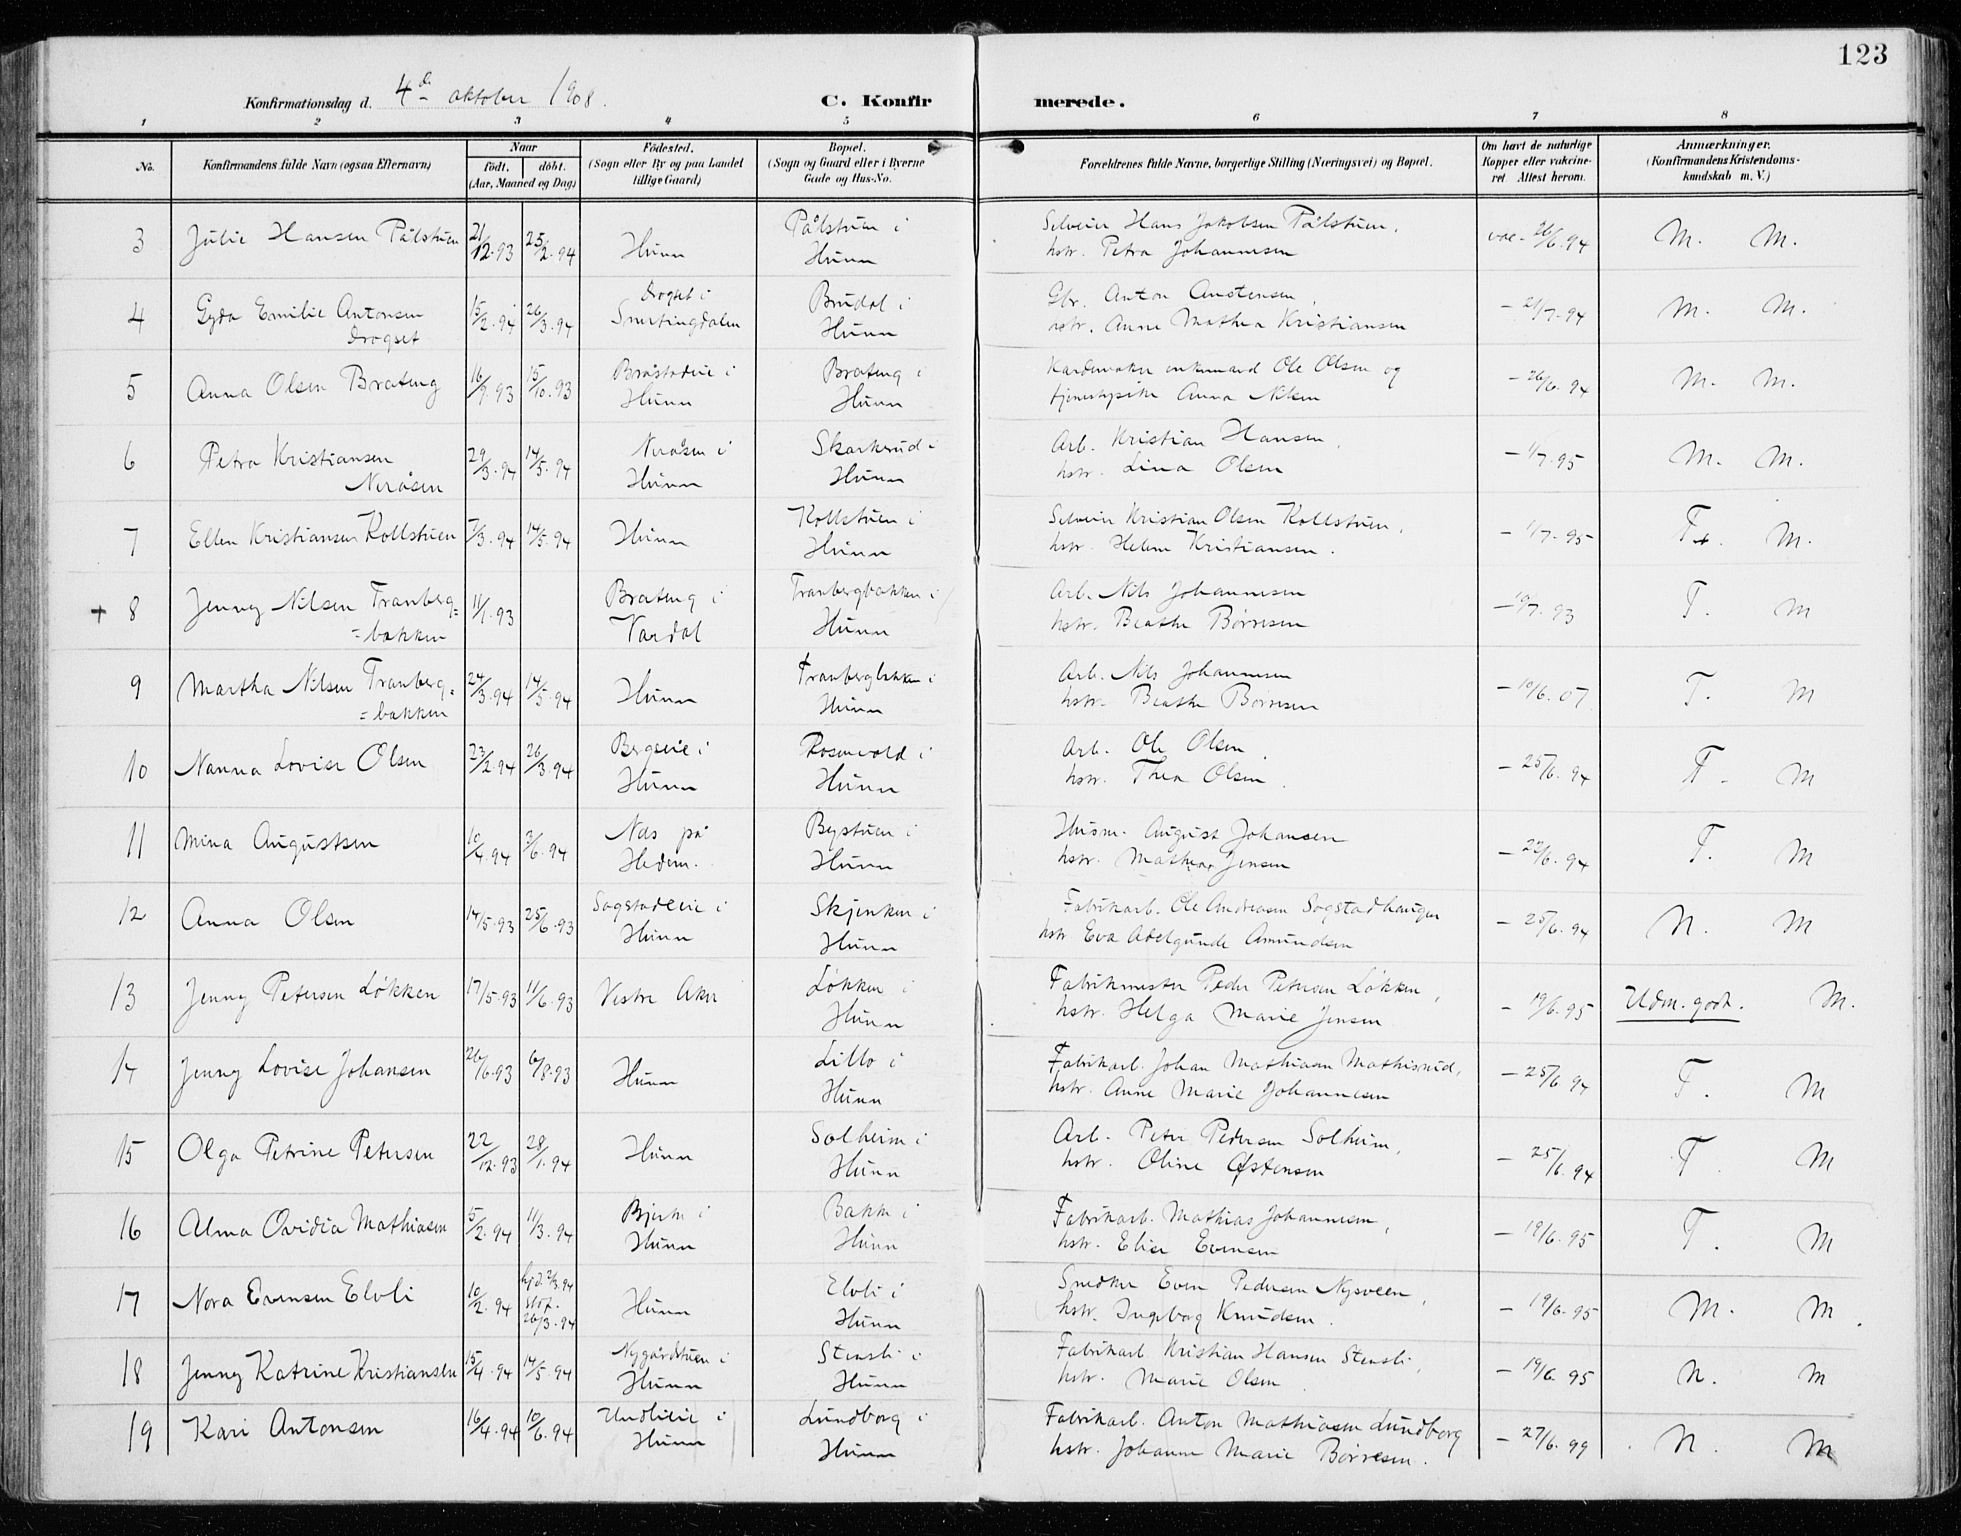 123
Konfirmationsdag d. 4de oktober 1908. C. Konfirmerede.
1 2 3 4 5 6 7 8
No. Konfirmandens fulde Navn (ogsaa Efternavn) Naar født. døbt. (Aar, Maaned og Dag) Fødested. (Sogn eller By og paa Landet tillige Gaard) Bopæl. (Sogn og Gaard eller i Byerne Gade og Hus-No. Forældrenes fulde Navne, borgerlige Stilling (Næringsvei) og Bopæl. Om havt de naturlige Kopper eller vakcineret. Attest herom. Anmærkninger. (Konfirmandens Kristendomskundskab m. V.)
3 Julie Hansen Pålstuen 21/12.93 25/2.94 Hunn Pålstuen i Hunn Selveier Hans Jakobsen Pålstuen, hstr. Petra Johannesen vac. 26/6.94 M. M.
4 Gyda Emilie Antonsen Drogset 15/2.94 26/3.94 Drogset i Snertingdalen Brudal i Hunn Gbr. Anton Anstensen, hstr. Anne Mathea Kristiansen - 21/7.94 M. M.
5 Anna Olsen Brateng 16/9.93 15/10.93 Bråstadeie i Hunn Brateng i Hunn Kardemaker enkemand Ole Olsen og tjenestepike Anna Nilsen - 26/6.94 M. M.
6 Petra Kristiansen Neråsen 29/3.94 14/5.94 Neråsen i Hunn Skarkerud i Hunn Arb. Kristian Hansen, hstr. Lina Olsen - 1/7.95 M. M.
7 Ellen Kristiansen Kollstuen 7/3.94 14/5.94 Hunn Kollstuen i Hunn Selveier Kristian Olsen Kollstuen, hstr. Helene Kristiansen. - 1/7.95 T+. M.
+ 8 Jenny Nilsen Tranberg= =bakken 11/1.93 Brateng i Vardal Tranbergbakken i Hunn Arb. Nils Johannesen hstr. Beathe Børresen - 10/7.93 T. M
9 Martha Nilsen Tranberg= =bakken 24/3.94 14/5.94 Hunn Tranbergbakken i Hunn Arb. Nils Johannesen hstr. Beathe Børresen - 10/6.07 T. M
10 Nanna Lovise Olsen 23/2.94 26/3.94 Bergseie i Hunn Rosenvold i Hunn Arb. Ole Olsen hstr. Thea Olsen. - 25/6.94 T. M
11 Mina Augustsen 10/4.94 3/6.94 Næs på Hedem. Bystuen i Hunn Husm. August Johansen hstr. Mathea Jensen - 22/6.94 T. M
12 Anna Olsen 14/5.93 25/6.93 Sogstadeie i Hunn Skjenken i Hunn Fabrikarb. Ole Andreasen Sogstadhaugen hstr Eva Adelgunde Amundsen - 25/6.94 N. M
13 Jenny Petersen Løkken 17/5.93 11/6.93 Vestre Aker Løkken i Hunn Fabrikmester Peder Petersen Løkken, hstr. Helga Marie Jensen - 19/6.95 Udm. godt. M.
14 Jenny Lovise Johansen 26/6.93 6/8.93 Hunn Lillo i Hunn Fabrikarb. Johan Mathiasen Mathisrud, hstr. Anne Marie Johannesen - 25/6.94 T. M
15 Olga Petrine Petersen 22/12.93 28/1.94 Hunn Solheim i Hunn Arb. Peter Pedersen Solheim, hstr. Oline Østensen - 25/6.94 T. M
16 Alma Ovidia Mathiasen 5/2.94 11/3.94 Bjerke i Hunn Bakke i Hunn Fabrikarb. Mathias Johannesen, hstr. Elise Evensen - 19/6.95 T. M
17 Nora Evensen Elvli 10/2.94 hjd. 2/3.94 stdf. 26/3.94 Hunn Elvli i Hunn Snedker Even Pedersen Nysveen, hstr. Ingeborg Knudsen. - 19/6.95 M. M.
18 Jenny Katrine Kristiansen 15/4.94 14/5.94 Nygårdstuen i Hunn Stensli i Hunn Fabrikarb Kristian Hansen Stensli, hstr. Marie Olsen - 19/6.95 N. M
19 Kari Antonsen 16/4.94 10/6.94 Undlieie i Hunn Lundborg i Hunn Fabrikarb. Anton Mathiasen Lundborg hstr. Johanne Marie Børresen. - 27/6.99 N. M